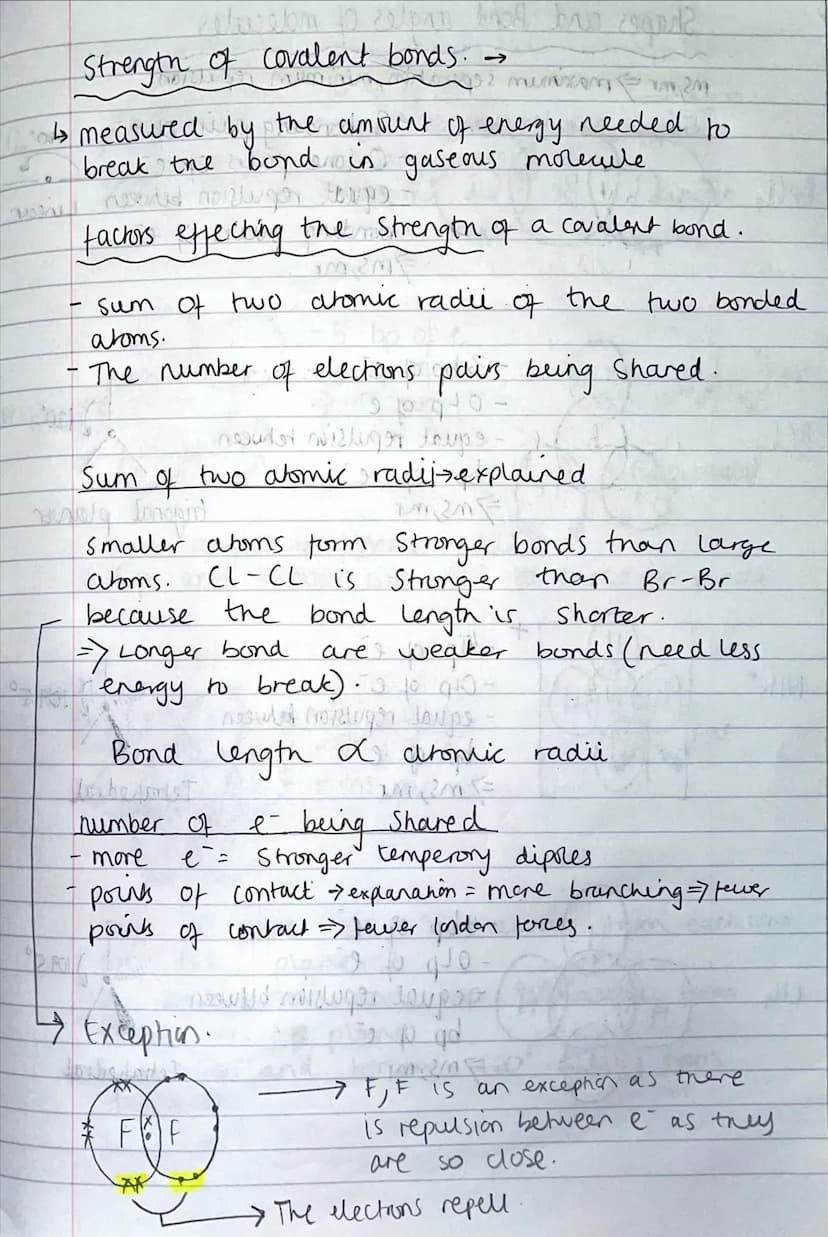 Strength of covalent bonds. →
↳ measured by the amount of energy needed to
break the bond in gaseous molecule
factors effecting the strength of a covalent bond.
- sum of two atomic radii of the two bonded
atoms.
- The number of electrons pairs being shared.
Sum of two atomic radii→explained
smaller atoms form stronger bonds than large
atoms. Cl-Cl is stronger than Br-Br
because the bond length is shorter.
⇒ Longer bond are weaker bonds (need less
energy to break).
Bond length ∝ atomic radii
number of e⁻ being shared
- more e⁻ = stronger temperory dipoles
- points of contact → expanation = more branching ⇒ fewer
points of contact ⇒ fewer london forces.
→ Exception.
F F
→ F, F is an exception as there
is repulsion between e⁻ as they
are so close.
→ The electrons repell.